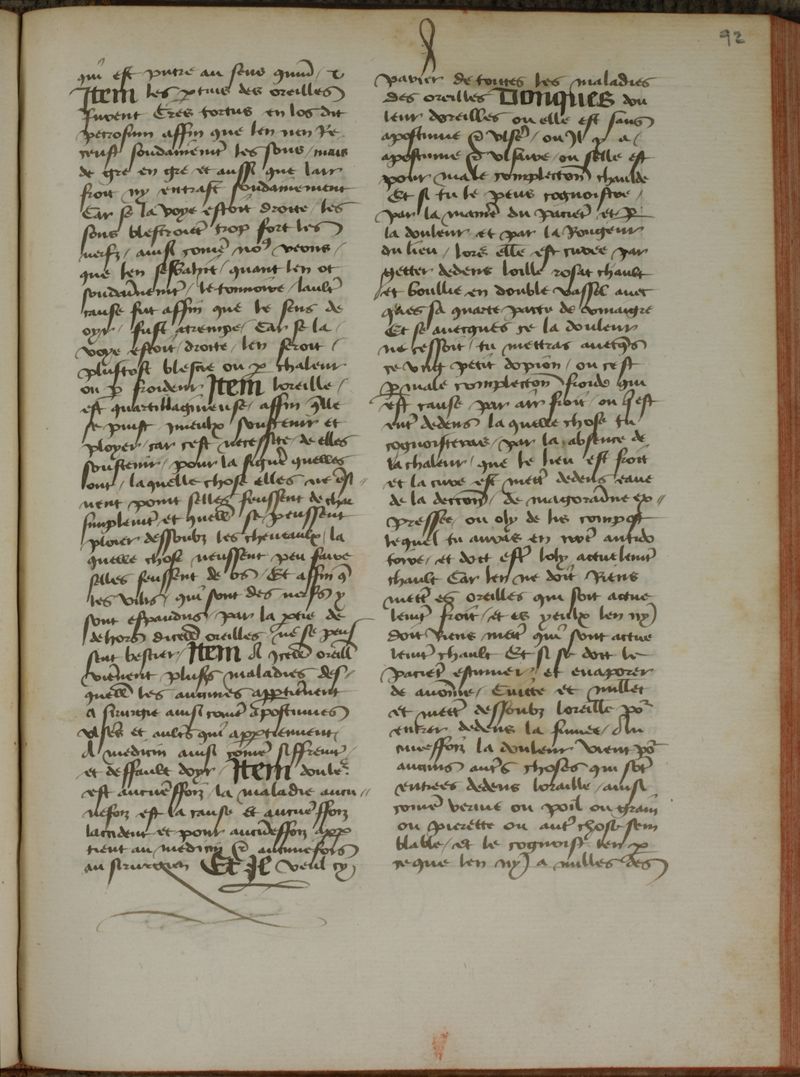 92
qui est
Item les ptius des oreilles
furent Cres tortus en los dit
petrosum affin que len nen Re
ceust soudainemt les sons / mais
de gre en gre et aussi que lair
froit ny entrast soudainement
Car se la voye estoit droite / les
sons blesseroiēt trop fort les
nerfz / ainsi comē noꝰ veons /
que len sesbahit / quant len ot
soudainemēt / le tonnoire / laultr
cause fut affin que le sens de
oyr / fust atrempe / Car se la /
voye estoit / droite / len seroit /
plustost blesse ou p chaleur
ou p froideur Item loreille /
est quartillagineuse / affin qlle
se puist mieulx soustenir et
ployer / car cest necessite / de elles
soustenir / pour la figure quelles
ont / laquelle chose elles ne
uent point selles feussent de char
simplemt et quell se peussent
ploier dessoubz les cheueaulx / la
quelle chose neussent peu faire
selles feussent de os / Et affin q
les qui sont des nerfs y
sont espandus / par la ptie de
dehors oreilles / ne se peus
sent blescier / Item A Icell oreill
viēnent plusrs maladies des /
quell les aucunes apptiēnent
A sirurgie ainsi comē apostumes
vlseres et aultrs qui apptiennent
A medicin ainsi comē siffremt /
et deffault doyr / Item doulr
est aucuneffoiz / la maladie aucu //
neffoiz est la cause Et aucuneffoiz
laccident et pour aucuneffoiz app
tient au medicin et aucunefois
au sirurgien Et Je veul cy
parler de toutes les maladies
des oreilles Donques dou
leur doreilles ou elle est sans
apostume et vlsre / ou Il y a /
apostume et vlsaire / ou selle est
pour male complection chaulde
Et si tu le peus cognoistre /
par la maniere du paciēt et p
la douleur et par la Rougeur
du lieu / lors elle est curee par
getter dedens loille rosat chault
et boullie en double vassel auec
sa quarte partie de vinaigre
Et se auecques ce la douleur
ne cessoit / tu mettras auecqs
ce vng petit dopion / ou cest
p male complection froide qui
est cause par air froit / ou qest
entr dedens la quelle chose tu
cognoisteras / par la absence de
la chaleur / que le lieu est froit
et la cure est mettre dedens eaue
de la decction / de magoraine ex //
pressee / ou oly de lis compost
lequel tu auras en antido
toire / et doit estre loly actuelemt
chault Car len ne doit Riens
mettre es oreilles qui soit actue
lemt froit / et es yeulx len ny
doit Riens mettre qui soit actue
lemt chault Et si se doit le
paciēt estuuer / et euaporer
de auoine / Cuitte et millet
et mettre dessoubz loreille pour
entrer dedens la fumee / Au
cuneffoiz la douleur vient pour
aucuns autrs choses qui sōt
entrees dedens loraille / ainsi
comē verme ou poil ou grain
ou pierette ou autr chose sem
blable / et le cognoist len p
ce que len ny a nulles des